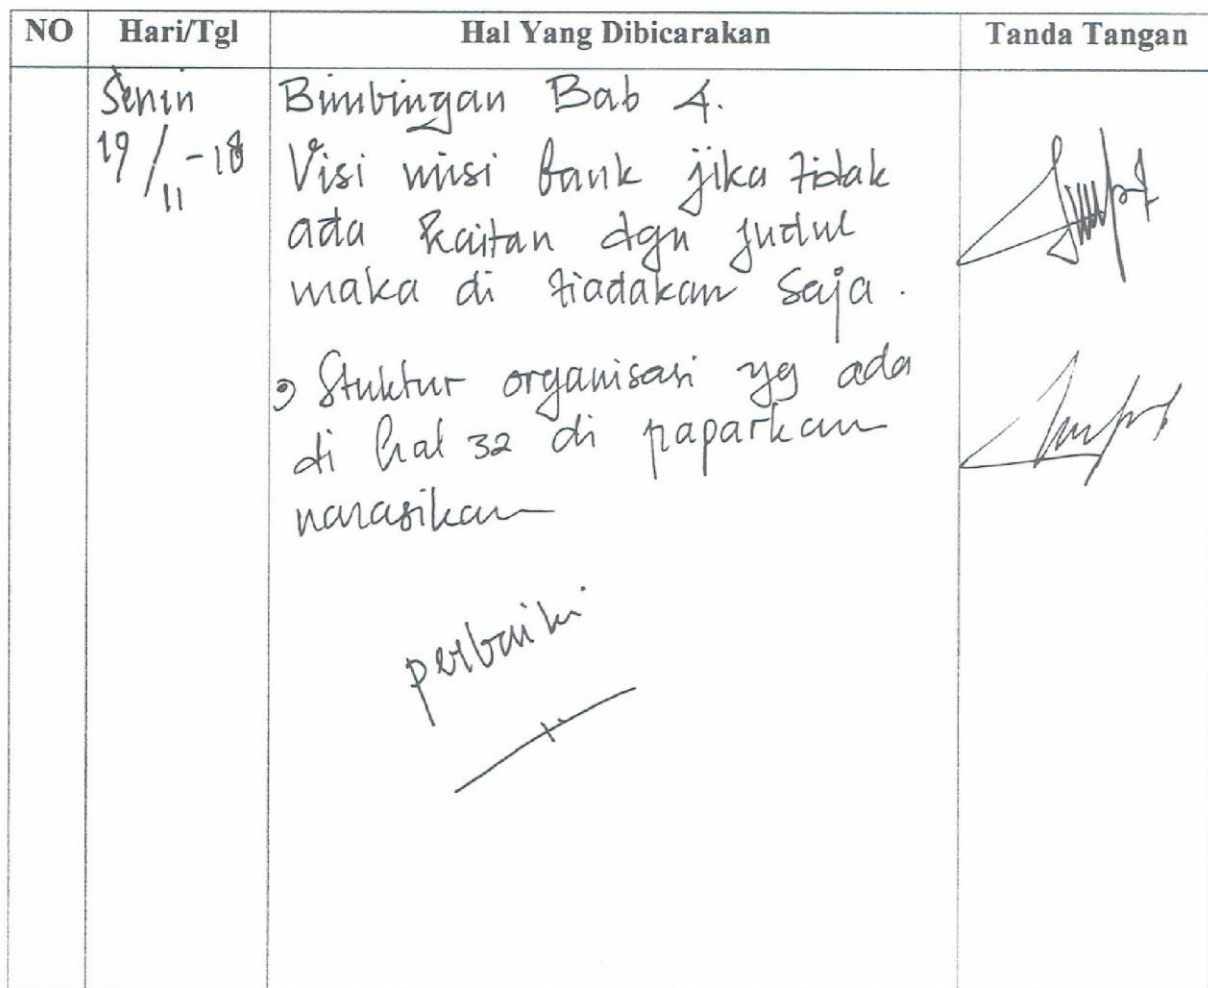 NO Hari/Tgl Hal Yang Dibicarakan Tanda Tangan
Senin Bimbingan Bab 4.
19/11-18 Visi misi bank jika tidak
ada kaitan dgn judul
maka di tiadakan saja.
Stuktur organisasi yg ada
di hal 32 di paparkan
narasikan
perbaiki